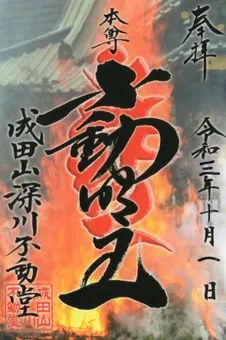 奉拝
令和三年十月一日
本尊
不動明王
成田山深川不動堂
成田山
不動堂